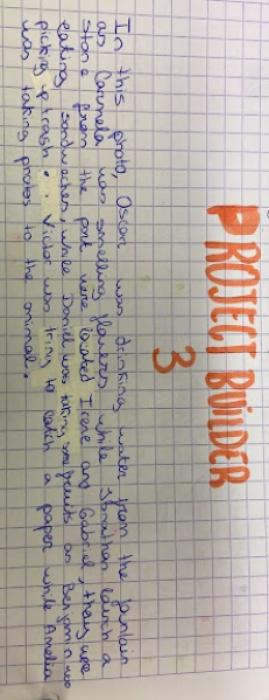 PROJECT BUILDER
3
In this photo, Oscar was drinking water from the fontain
as Carmela was smelling flowers while Jonathan launch a
stone from the pont were located Irene and Gabriel, they were
eating sandwiches, while Daniel was taking some fruits as Benjamin was
picking up trash. Victor was triny to catch a paper while Amelia
was taking photos to the animals.